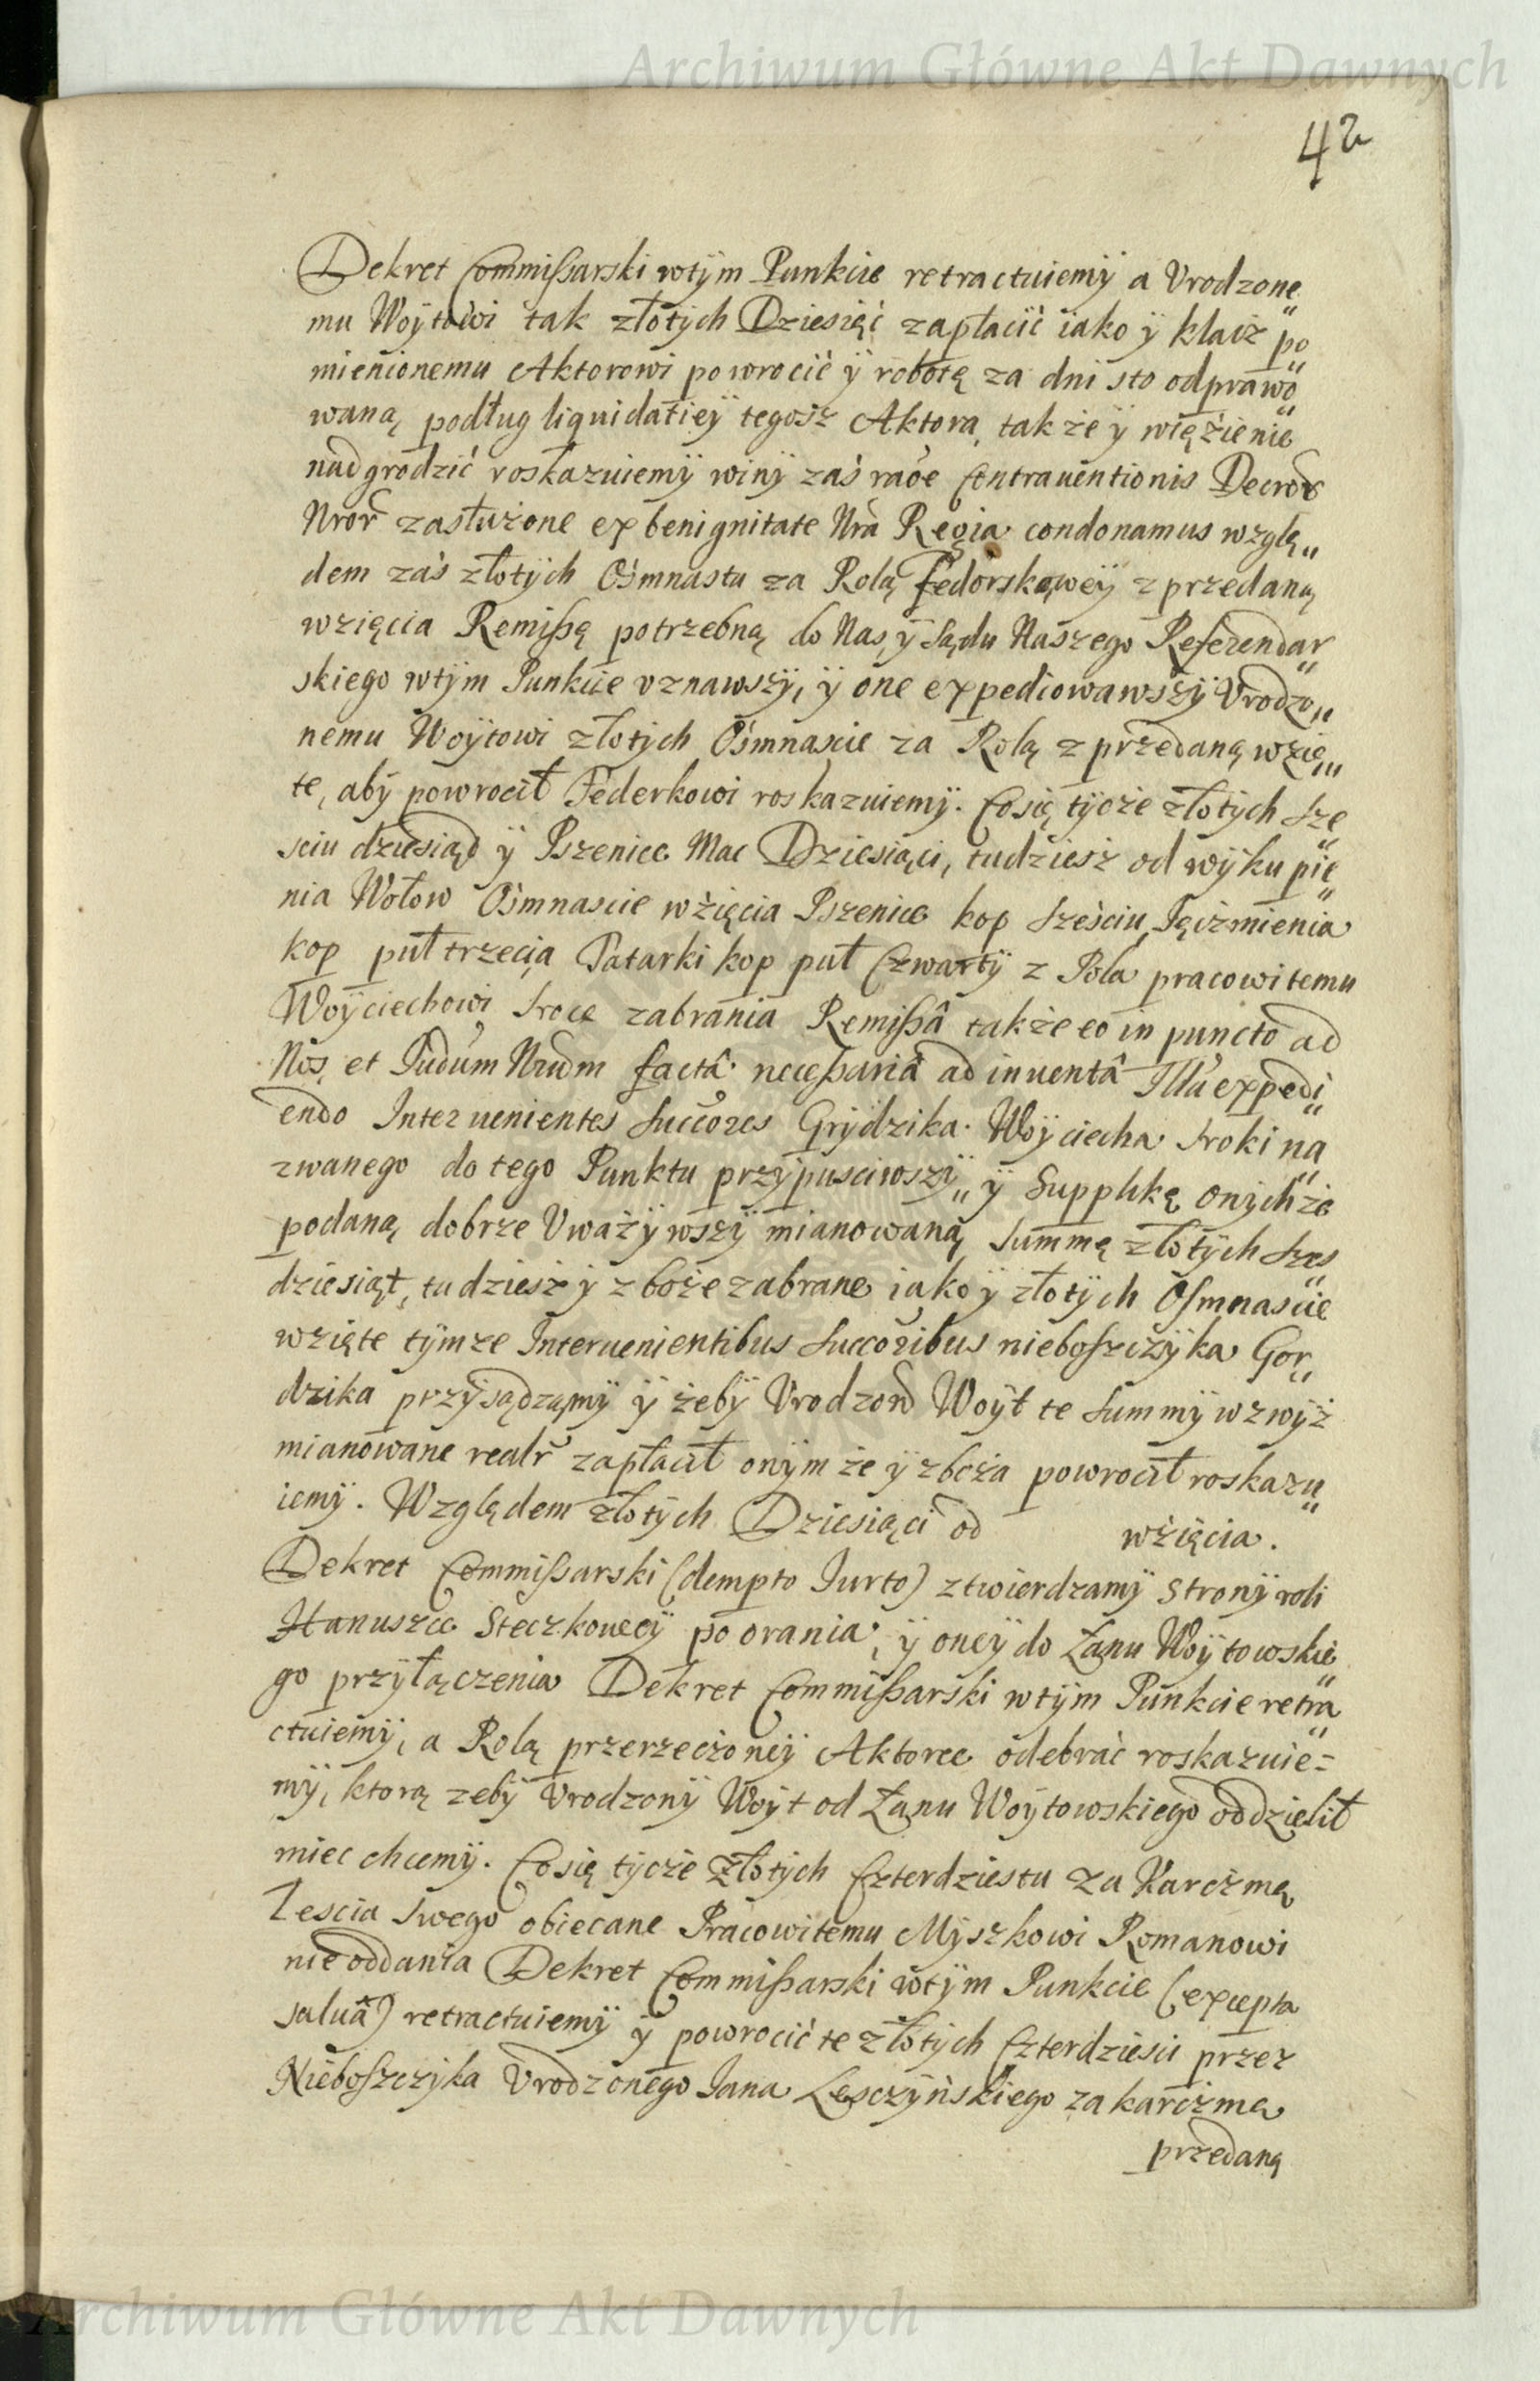 Archiwum Główne Akt Dawnych
42
Dekret Commissarski wtÿm Punkcie retractuiemÿ a Vrodzone„
mu Woÿtowi tak złotÿch Dziesięć zapłacić iako ÿ klacz po„
mienionemu Aktorowi powrocić ÿ robotę za dni sto odprawo„
waną podług liquidatieÿ tegosz Aktora, także ÿ więźienie
nadgrodzić roskazuiemÿ winÿ zaś raõe Contrauentionis Decror
Nror zasłużone ex benignitate Nrã Regia condonamus wzglę„
dem zaś złotÿch Ośmnastu za Rolą Fedorskąweÿ zprzedaną
wzięcia Remissę potrzebną do Nas, ÿ Sądu Naszego Referendar„
skiego wtÿm Punkcie vznawszÿ, ÿ one expediowawszÿ Vrodzo„
nemu Woÿtowi złotÿch Ośmnascie za Rolą zprzedaną wzię„
te, abÿ powrocił Federkowi roskazuiemÿ. Co się tÿcze złotÿch Sze„
sciu dziesiąd ÿ Pszenice Mac Dziesiąci, tudziesz od wÿkupie„
nia Wołow Ośmnascie wźięcia Pszenice kop Sześciu, Jęczmienia
kop pułtrzecia Tatarki kop puł Czwartÿ z Pola pracowitemu
Woÿciechowi Sroce zabrania Remissâ także eo in puncto ad
Nos, et Judum Nrudm factâ necessariâ ad inuentâ Illa expedi„
endo Interuenientes Succores Grÿdzika Woÿciecha Sroki na„
zwanego do tego Punktu przÿpusciwszÿ„ ÿ Supplikę onÿchże
podaną dobrze Vważÿwszÿ mianowaną Summę złotÿch Szes„
dziesiąt, tudziesż ÿ zboże zabrane iako ÿ złotÿch Osmnascie
wzięte tÿmże Interuenientibus Succoribus nieboszczÿka Gor„
dzika przÿsądzamÿ ÿ żebÿ Vrodzonÿ Woÿt te Summÿ wzwÿż
mianowane realr zapłacił onÿmże ÿ zboża powrocił roskazu„
iemÿ. Względem złotÿch Dziesiąci od wźięcia.
Dekret Commissarski (dempto Iurto) ztwierdzamÿ Stronÿ roli
Hanuszce Steczkoweÿ poorania, ÿ oneÿ do Łanu Woÿtowskie„
go przÿłączenia Dekret Commissarski wtÿm Punkcie retra„
ctuiemÿ, a Rolą przerzeczoneÿ Aktorce odebrać roskazuie=
mÿ, ktorą zebÿ Vrodzonÿ Woÿt od Łanu Woÿtowskiego oddzielił
miec chcemÿ. Co się tÿcze Złotÿch Czterdziestu za Karczmę
Zescia Swego obiecane Pracowitemu Mÿszkowi Romanowi
nieoddania Dekret Commissarski wtÿm Punkcie (excepta
saluâ) retractuiemÿ ÿ powrocić te złotÿch Czterdziesci przez
Nieboszczÿka Vrodzonego Jana Lesczÿńskiego za karczmę
przedaną
Archiwum Główne Akt Dawnych